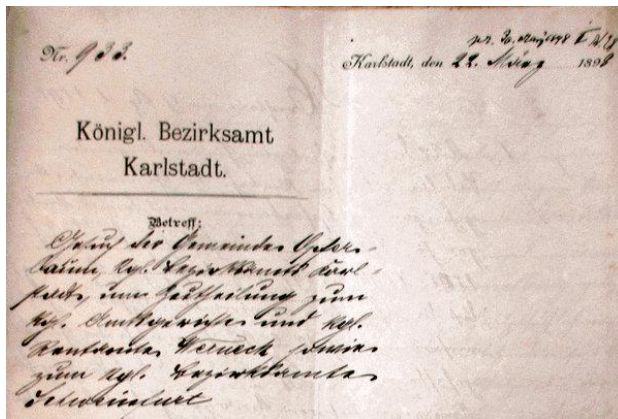 Nr. 933.
Karlstadt, den 22. März 1898
Königl. Bezirksamt
Karlstadt.
Betreff:
Gesuch der Gemeinde Opfer-
baum, kgl. Bezirksamts Karl-
stadt, um Zutheilung zum
kgl. Amtsgerichte und kgl.
Rentamte Werneck sowie
zum kgl. Bezirksamte
Schweinfurt